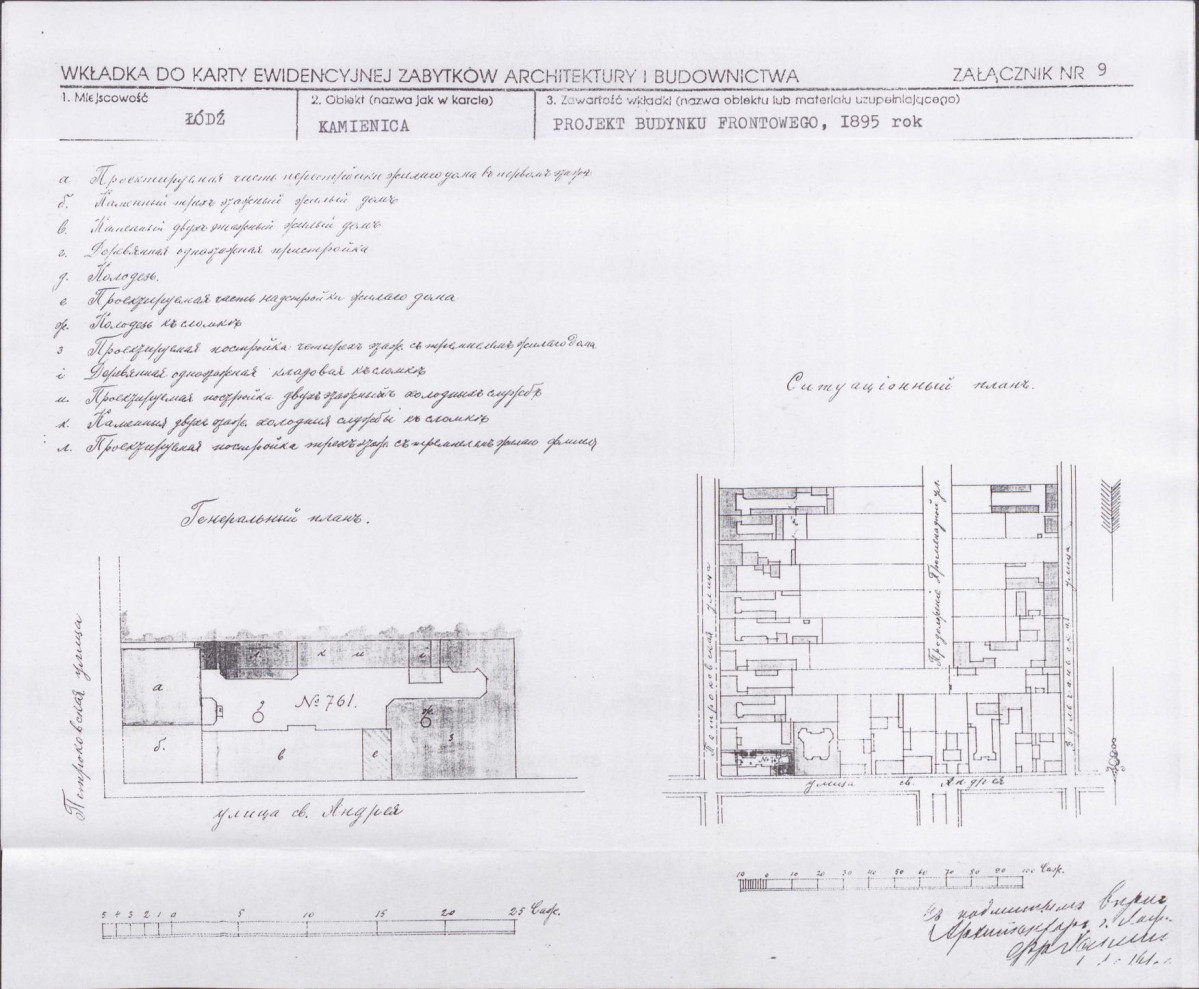 WKŁADKA DO KARTY EWIDENCYJNEJ ZABYTKÓW ARCHITEKTURY I BUDOWNICTWA
ZAŁĄCZNIK NR 9
1. Miejscowość
ŁÓDŹ
2. Obiekt (nazwa jak w karcie)
KAMIENICA
3. Zawartość wkładki (nazwa obiektu lub materiału uzupełniającego)
PROJEKT BUDYNKU FRONTOWEGO, I895 rok
а Проектируемая часть перестройки жилаго дома въ первомъ этажѣ
б. Каменный трехъэтажный жилый домъ
в. Каменный двухъэтажный жилый домъ
г. Деревянная одноэтажная пристройка
д. Колодезь.
е Проектируемая часть надстройки жилаго дома
ж. Колодезь къ сломкѣ
з Проектируемая постройка четырех этаж. съ жилаго дома
і Деревянная одноэтажная кладовая къ сломкѣ
и. Проектируемая постройка двухъэтажныхъ холодныхъ службъ
к. Каменныя двухъ этаж. холодныя службы къ сломкѣ
л. Проектируемая постройка трехъ этаж. съ
Генеральный планъ.
Ситуаціонный планъ.
Петроковская улица
а
б.
к
и
№ 761.
ж.
з
в
улица св. Андрея
Петроковская улица
улица
улица св. Андрея
5 4 3 2 1 0 5 10 15 20 25 Саж.
10 0 10 20 30 40 50 60 70 80 90 100 Саж.
Съ подлиннымъ вѣрно
Архитекторъ г. Лодзи